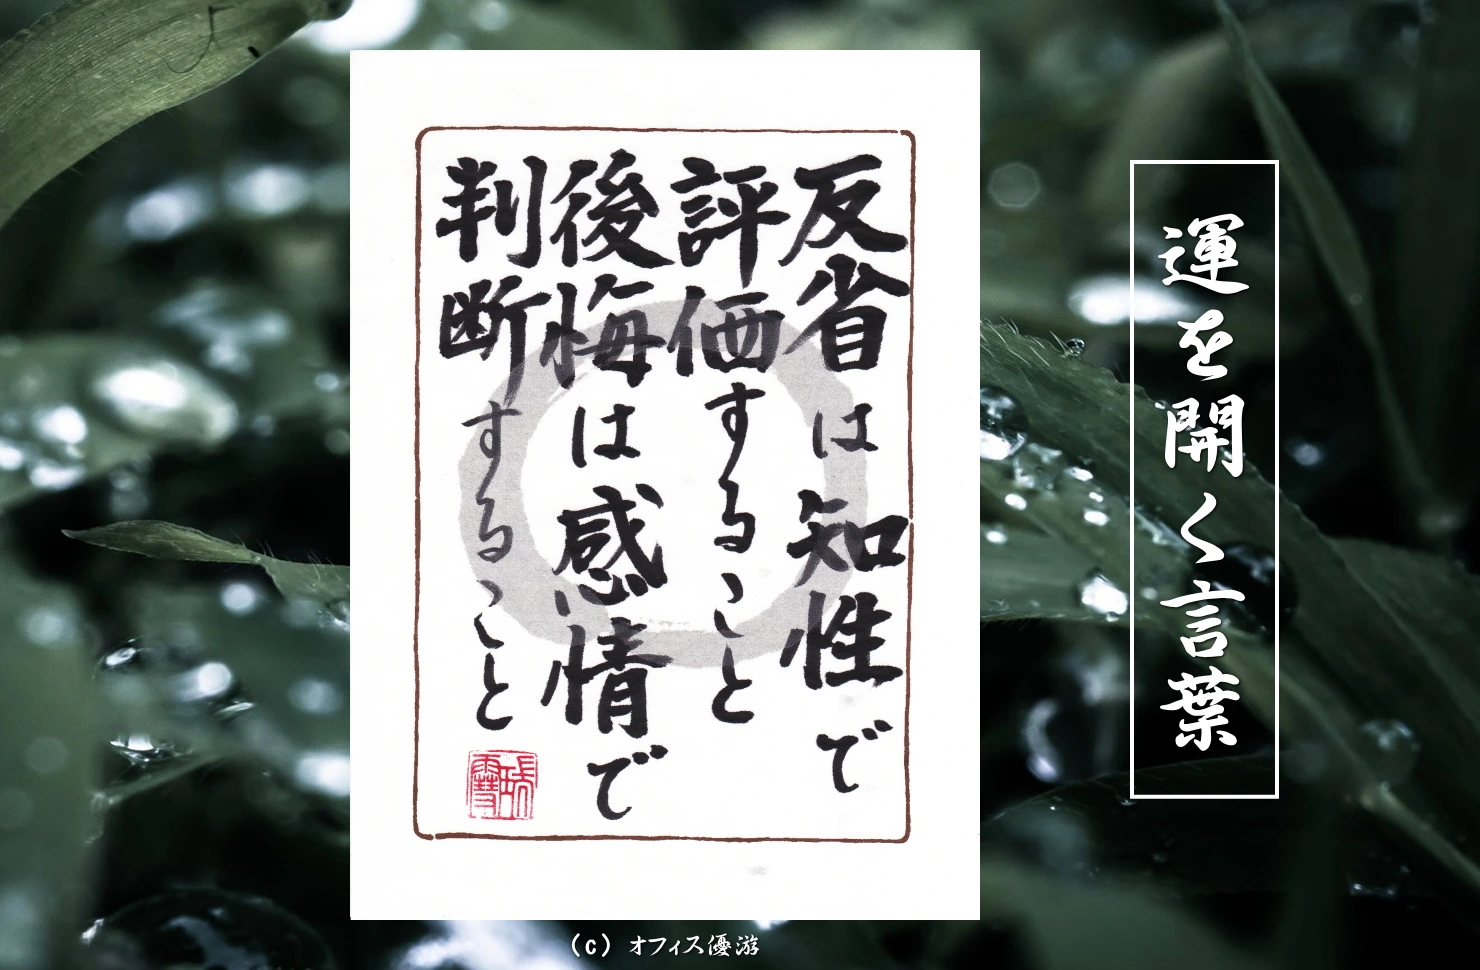 反省は知性で
評価すること
後悔は感情で
判断すること
運を開く言葉
(c) オフィス優游